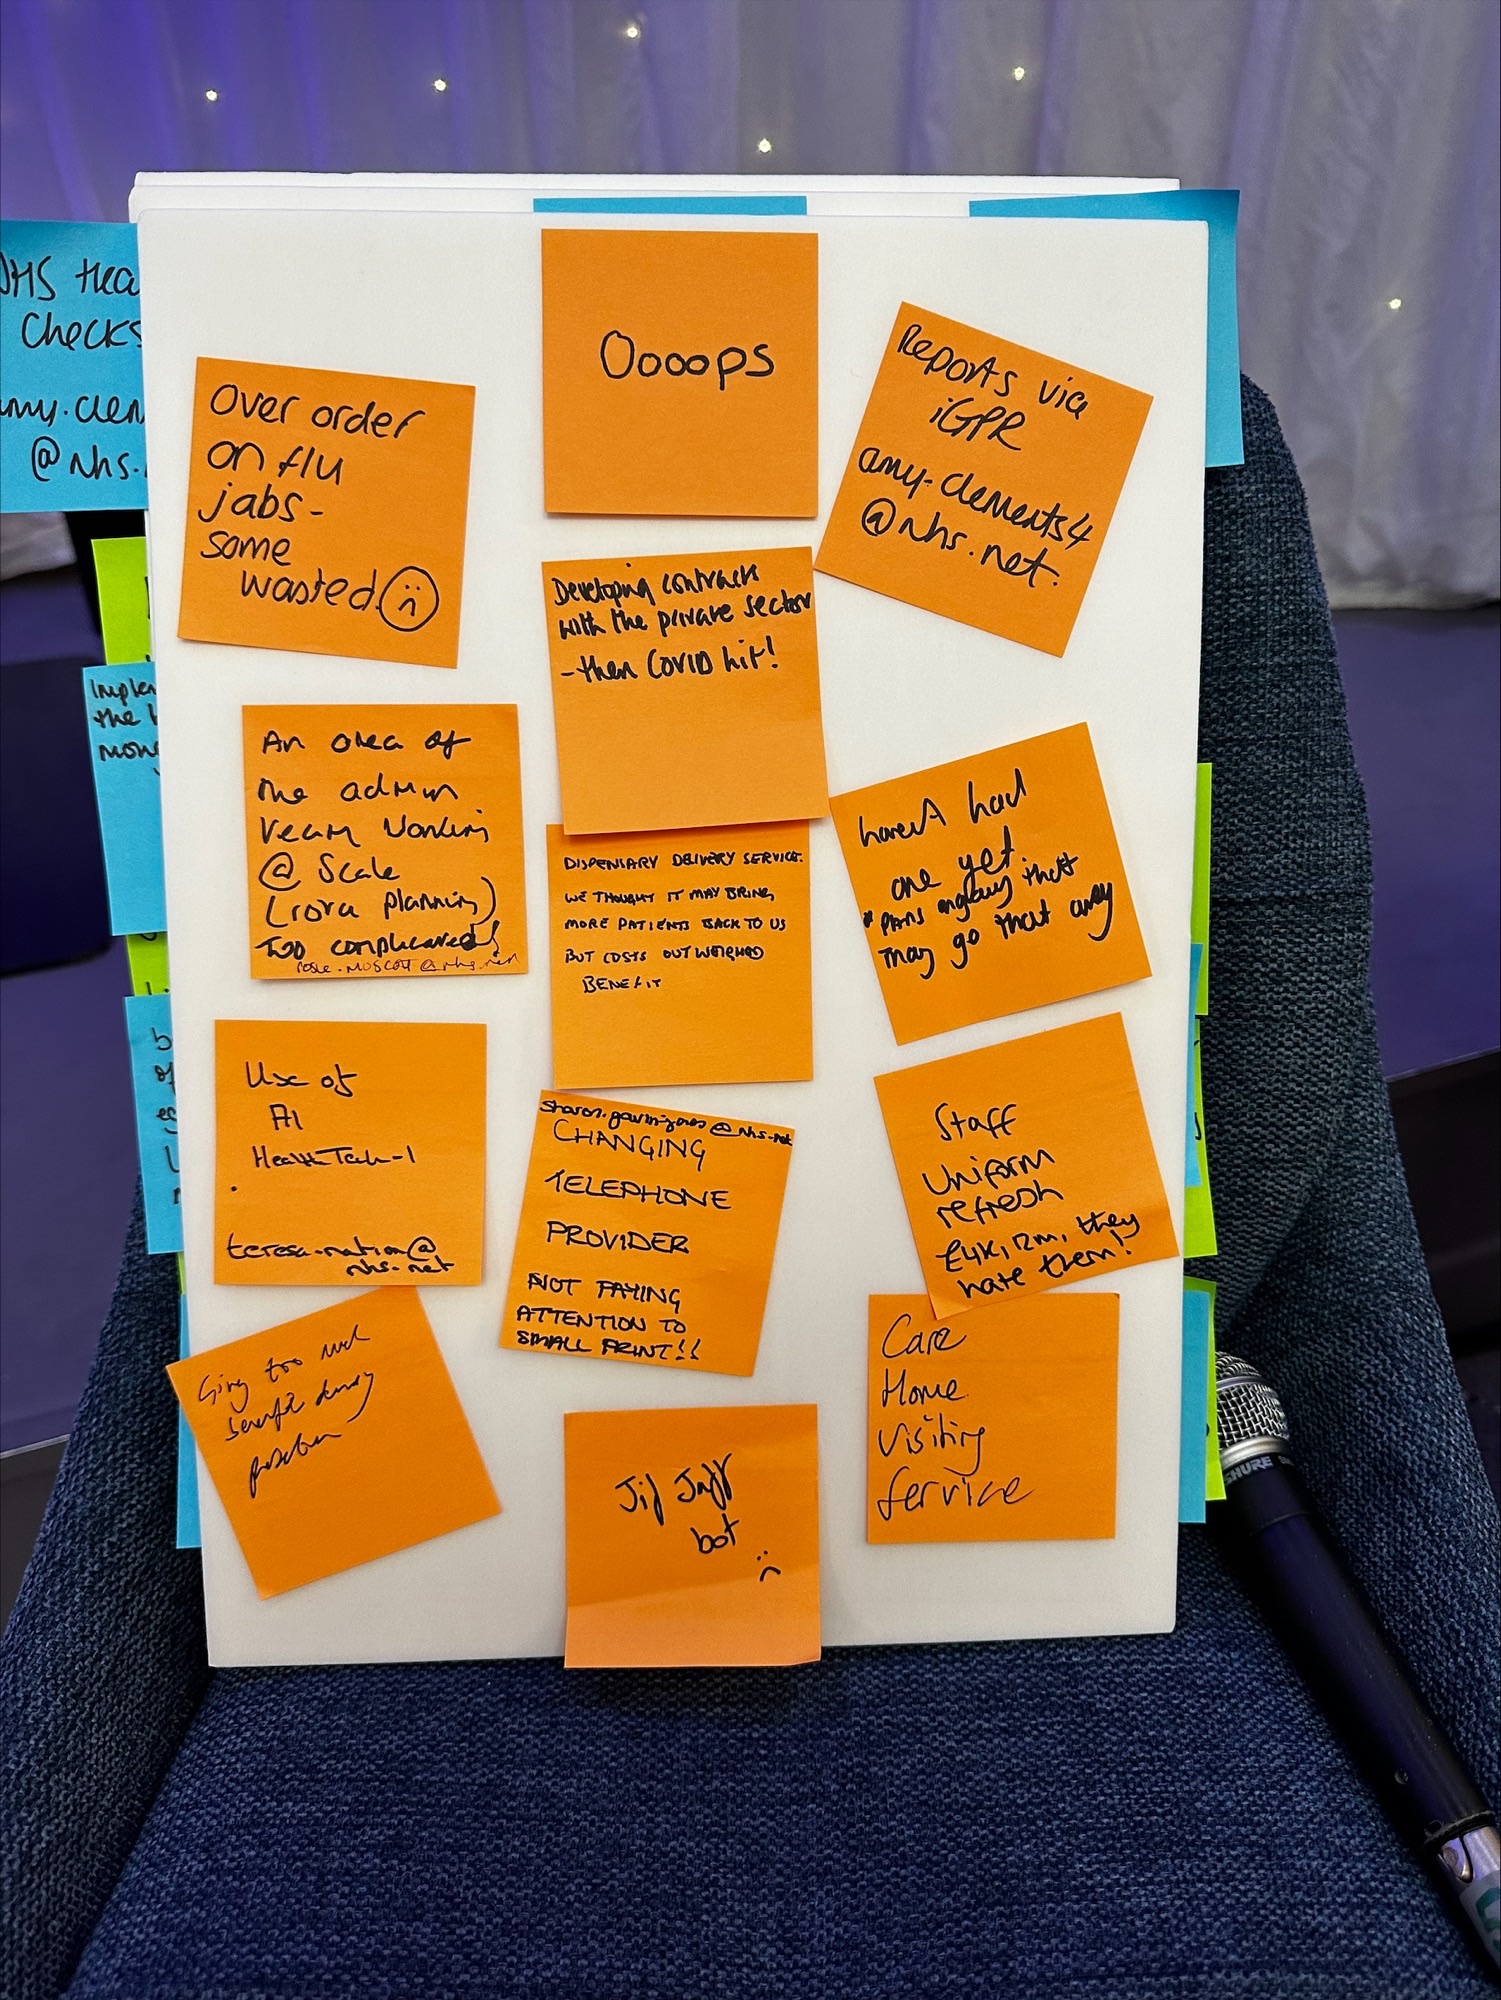 Oooops
Over order
on flu
jabs -
some
wasted.
Reports via
iGPR
amy.clements4
@nhs.net.
Developing contracts
with the private sector
- then COVID hit!
An area of
the admin
team working
@ Scale
(rota planning)
too complicated!
@nhs.net
DISPENSARY DELIVERY SERVICE.
WE THOUGHT IT MAY BRING
MORE PATIENTS BACK TO US
BUT COSTS OUTWEIGHED
BENEFIT
haven't had
one yet
* PMS that
may go that away
Use of
AI
HealthTech-1
teresa.nation@
nhs.net
@nhs.net
CHANGING
TELEPHONE
PROVIDER
NOT PAYING
ATTENTION TO
SMALL PRINT!!
Staff
Uniform
refresh
£4K, 12m, they
hate them!
Giving too much
benefit during
Jif Jaff
bot
Care
Home
Visiting
Service
NHS Hea
Checks
amy.clem
@nhs.
Implem
the